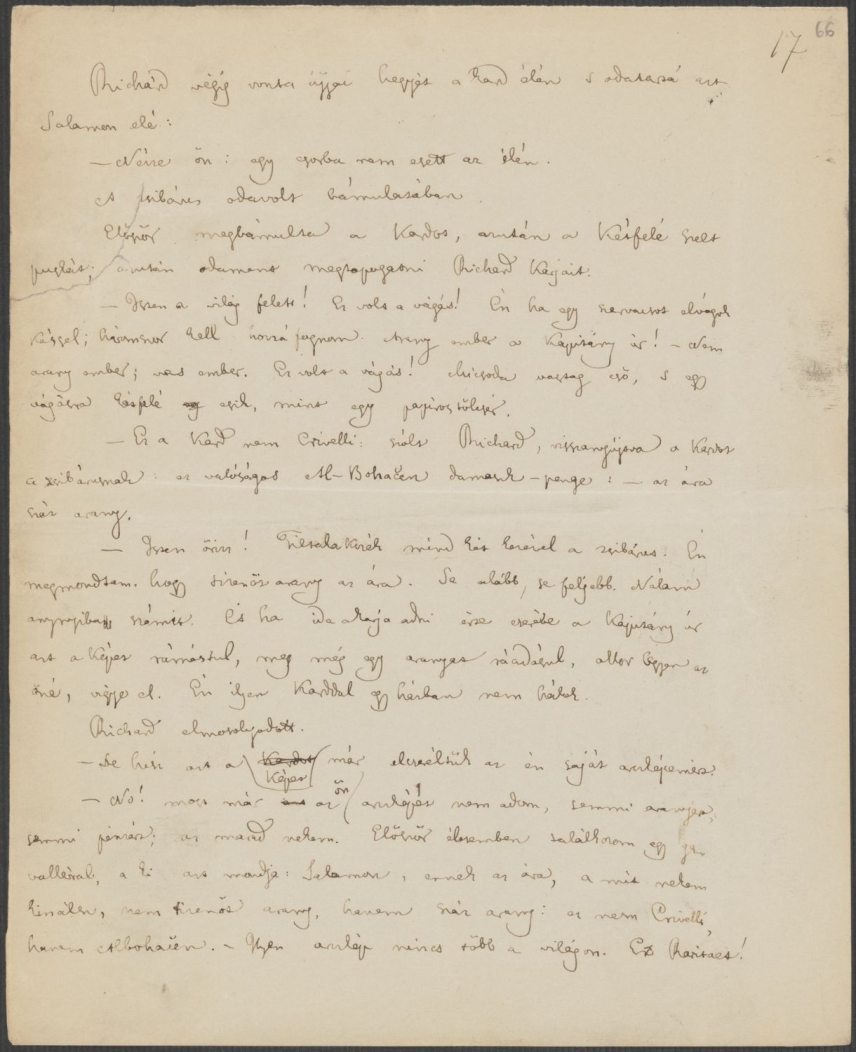 17
66
Richárd végig vonta újjai hegyét a kard élén s odatartá azt
Salamon elé:
— Nézze ön: egy csorba nem esett az élén.
A zsibárus odavolt bámulatában.
Először megbámulta a kardot, azután a kétfelé szelt
puskát; azután odament megtapogatni Richard karjait.
— Isten a világ felett! Ez volt a vágás! Én ha egy szarvascsot elvágok
késsel; háromszor kell hozzá fognom. Arany ember a kapitány úr! — Nem
arany ember; vas ember. Ez volt a vágás! Micsoda vastag cső, s egy
vágásra kétfelé esik, mint egy papirostölcsér.
— Ez a kard nem Crivelli: szólt Richard, visszanyújtva a kardot
a zsibárusnak: ez valóságos Al-Bohačen damask-penge: — az ára
száz arany.
— Isten őrizz! Tiltakozék mind két kezével a zsibárus. Én
megmondtam, hogy tizenöt arany az ára. Se alább, se feljebb. Nálam
annyiban számit. És ha ide akarja adni érte cserébe a kapitány úr
azt a képet rámástul, meg még egy aranyat ráadásul, akkor legyen az
öné, vigye el. Én ilyen karddal egy házban nem hálok.
Richard elmosolyodott.
— De hisz azt a képet már elcseréltük az én saját arczképemért.
— No! most már az ön arczképét nem adom, semmi aranyért,
semmi pénzért; az marad nekem. Először életemben találkozom egy
a ki azt mondja: Salamon, ennek az ára, a mit nekem
kinálsz, nem tizenöt arany, hanem száz arany: ez nem Crivelli,
hanem Albohačen. — Ilyen arczkép nincs több a világon. Ez Raritaet!